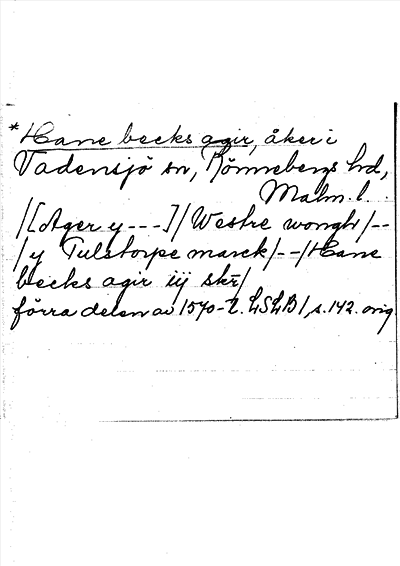 *Hane becks agir, åker i
Vadensjö sn, Rönnebergs hd,
Malm. l.
/[Ager y---]/Westre wongh/--
/y Tulstorpe marck/--/Hane
becks agir iij skr/
förra delen av 1570-t. LSLB1, s. 142. orig.